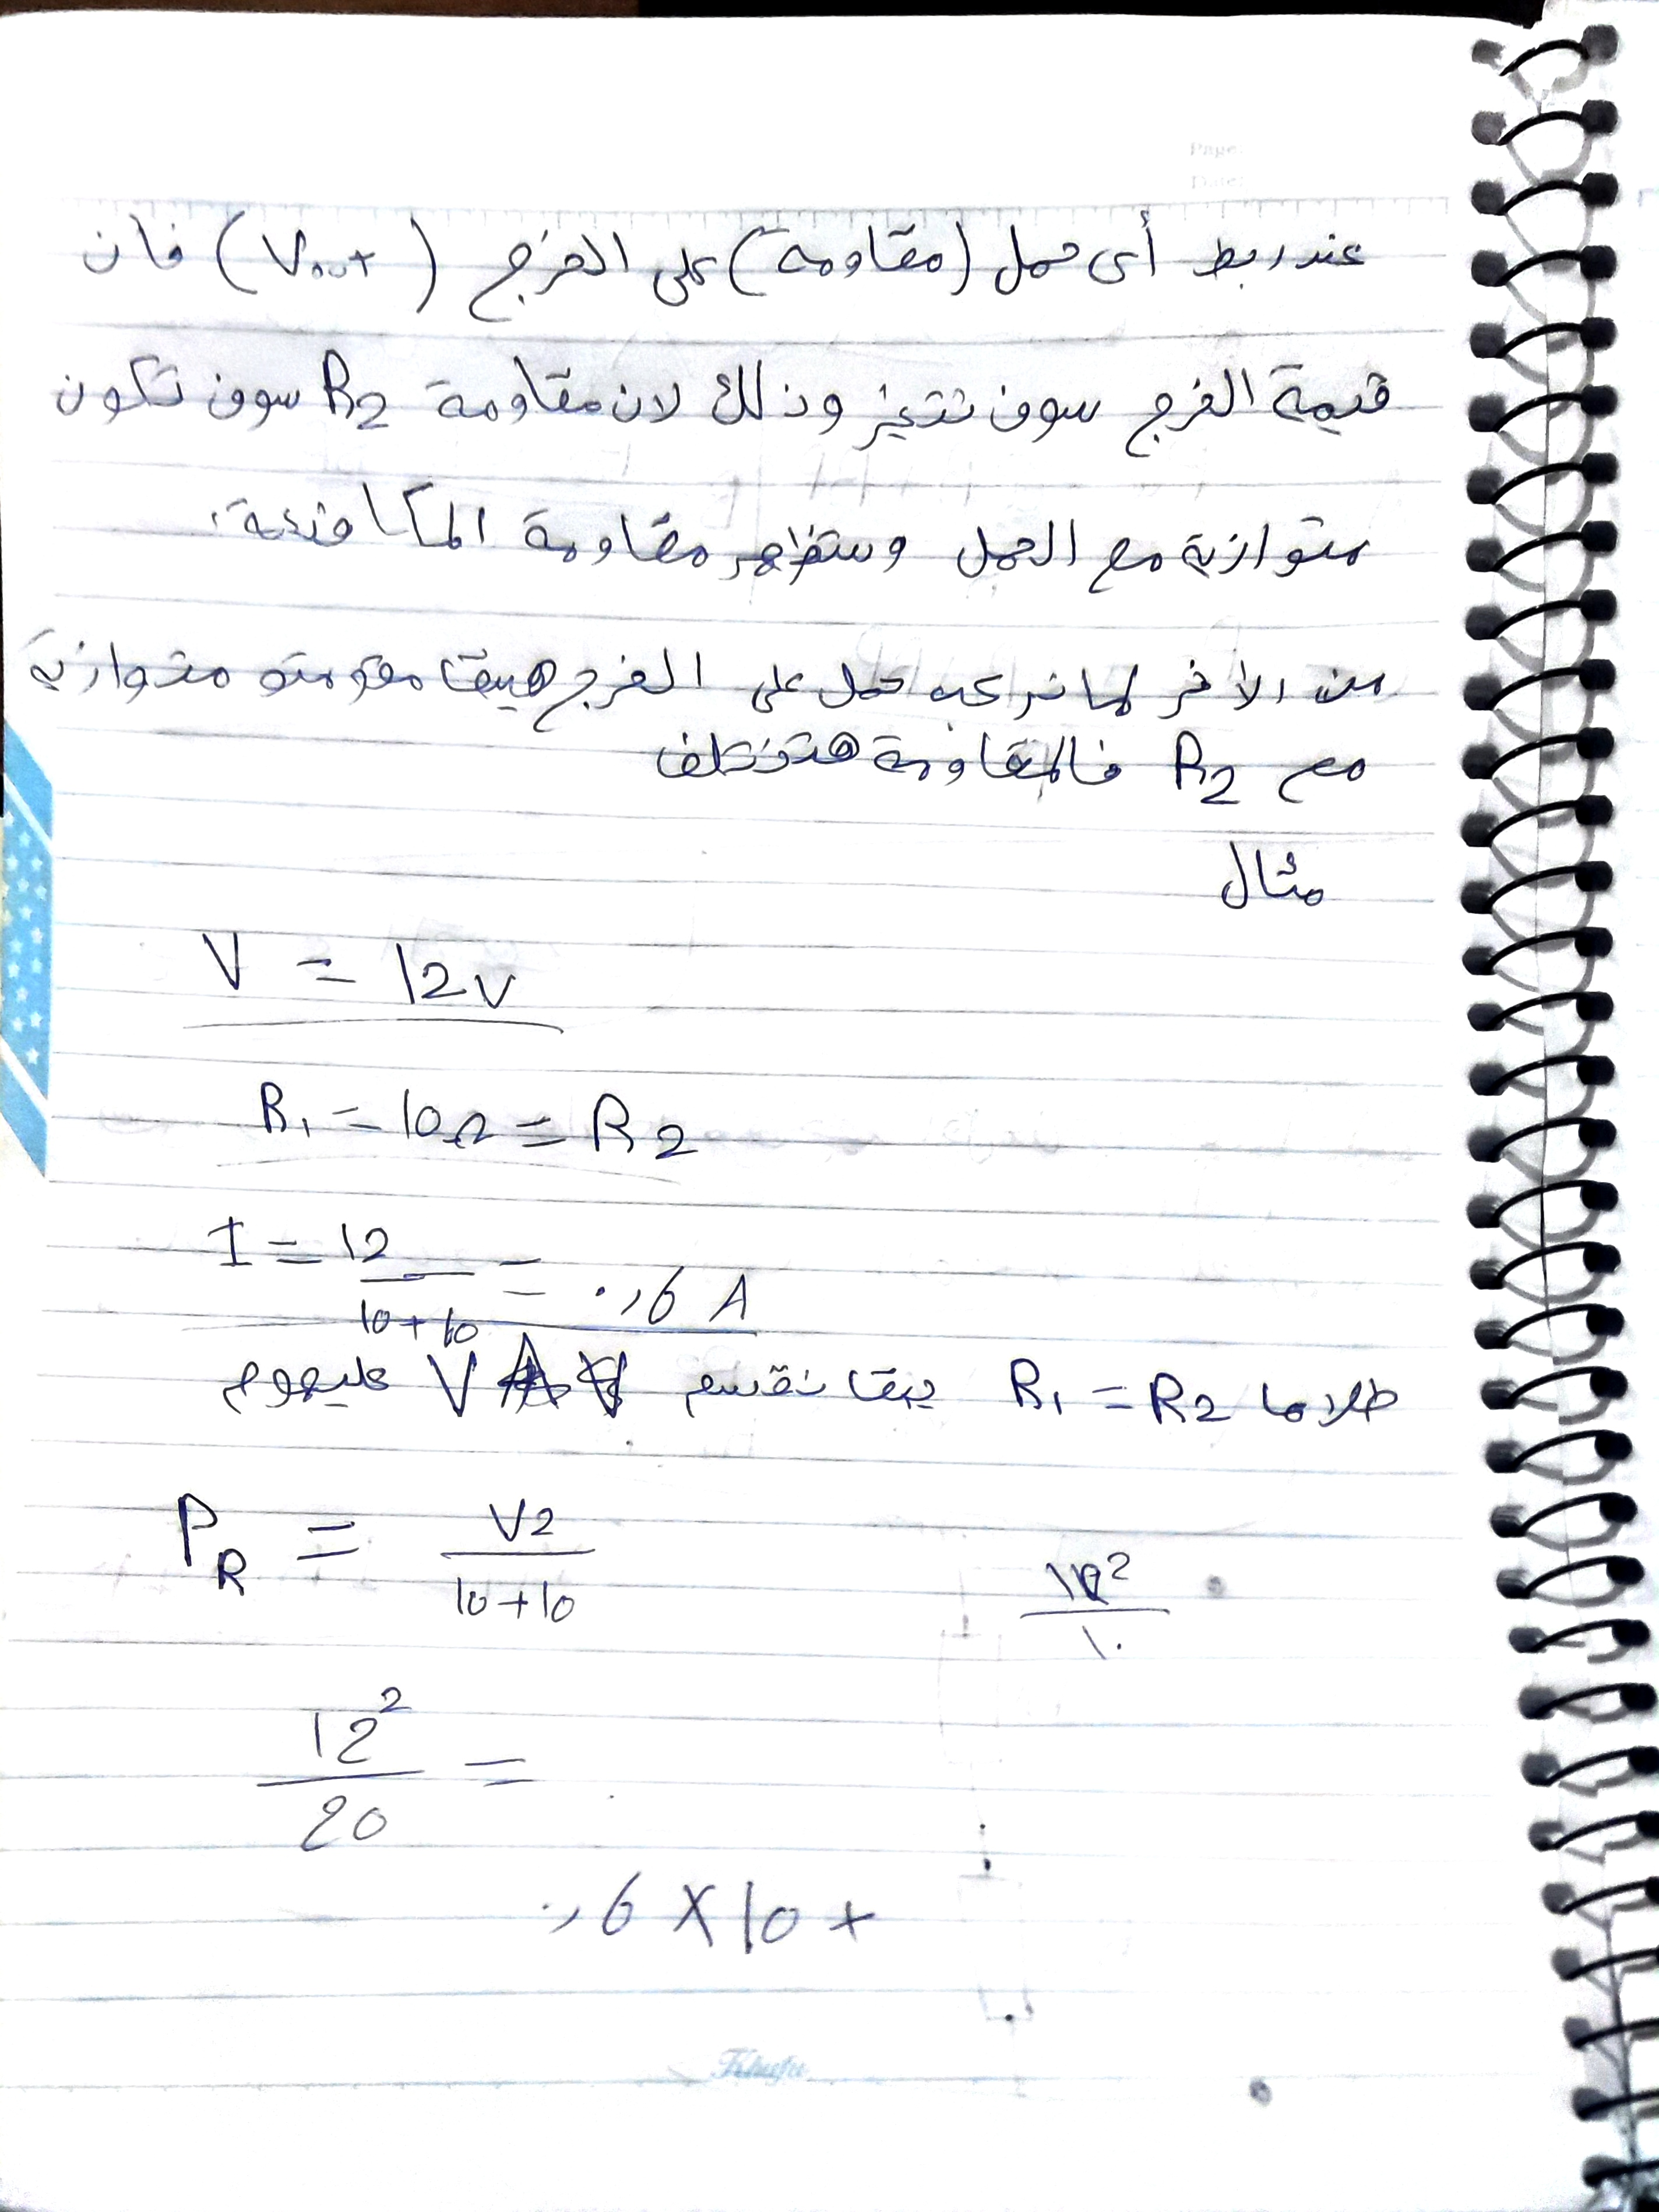 Page:
Date:
عند ربط أى حمل (مقاومة) على الخرج (Vout) فان
قيمة الخرج سوف تتغير وذلك لان مقاومة R2 سوف تكون
متوازية مع الحمل وستظهر مقاومة المكافئة،
من الأخر لما نركب حمل على الخرج هيبقا مقومتو متوازية
مع R2 فالمقاومة هتختلف
مثال
V = 12v
R1 = 10Ω = R2
I = 12/10+10 = 0,6 A
طلاما R1 = R2 يبقا نقسم V عليهم
PR = V2/10+10
12²/10
12²/20 =
0,6 X 10 +
Khufu